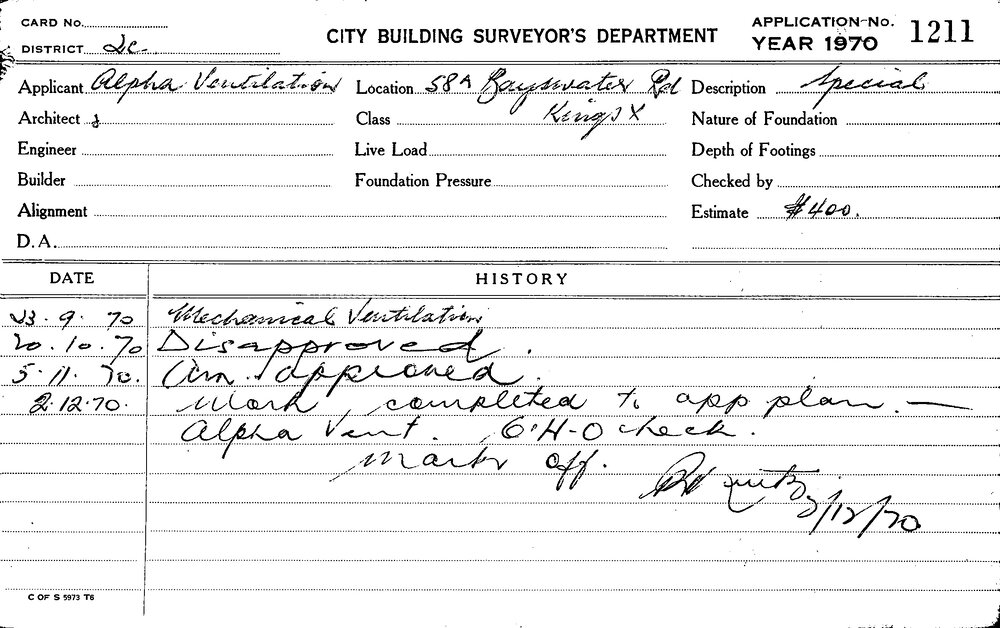 CARD No.
DISTRICT 2c.
CITY BUILDING SURVEYOR'S DEPARTMENT
APPLICATION No. 1211
YEAR 1970
Applicant Alpha Ventilation
Location 58A Bayswater Rd
Kings X
Description Special
Architect
Class
Nature of Foundation
Engineer
Live Load
Depth of Footings
Builder
Foundation Pressure
Checked by
Alignment
Estimate $400.
D.A.
DATE HISTORY
23.9.70 Mechanical Ventilation
20.10.70 Disapproved.
5.11.70. Am. approved.
2.12.70. Work completed to app plan. —
Alpha Vent. C.H-O check.
Mark off.
3/12/70
C OF S 5973 T6